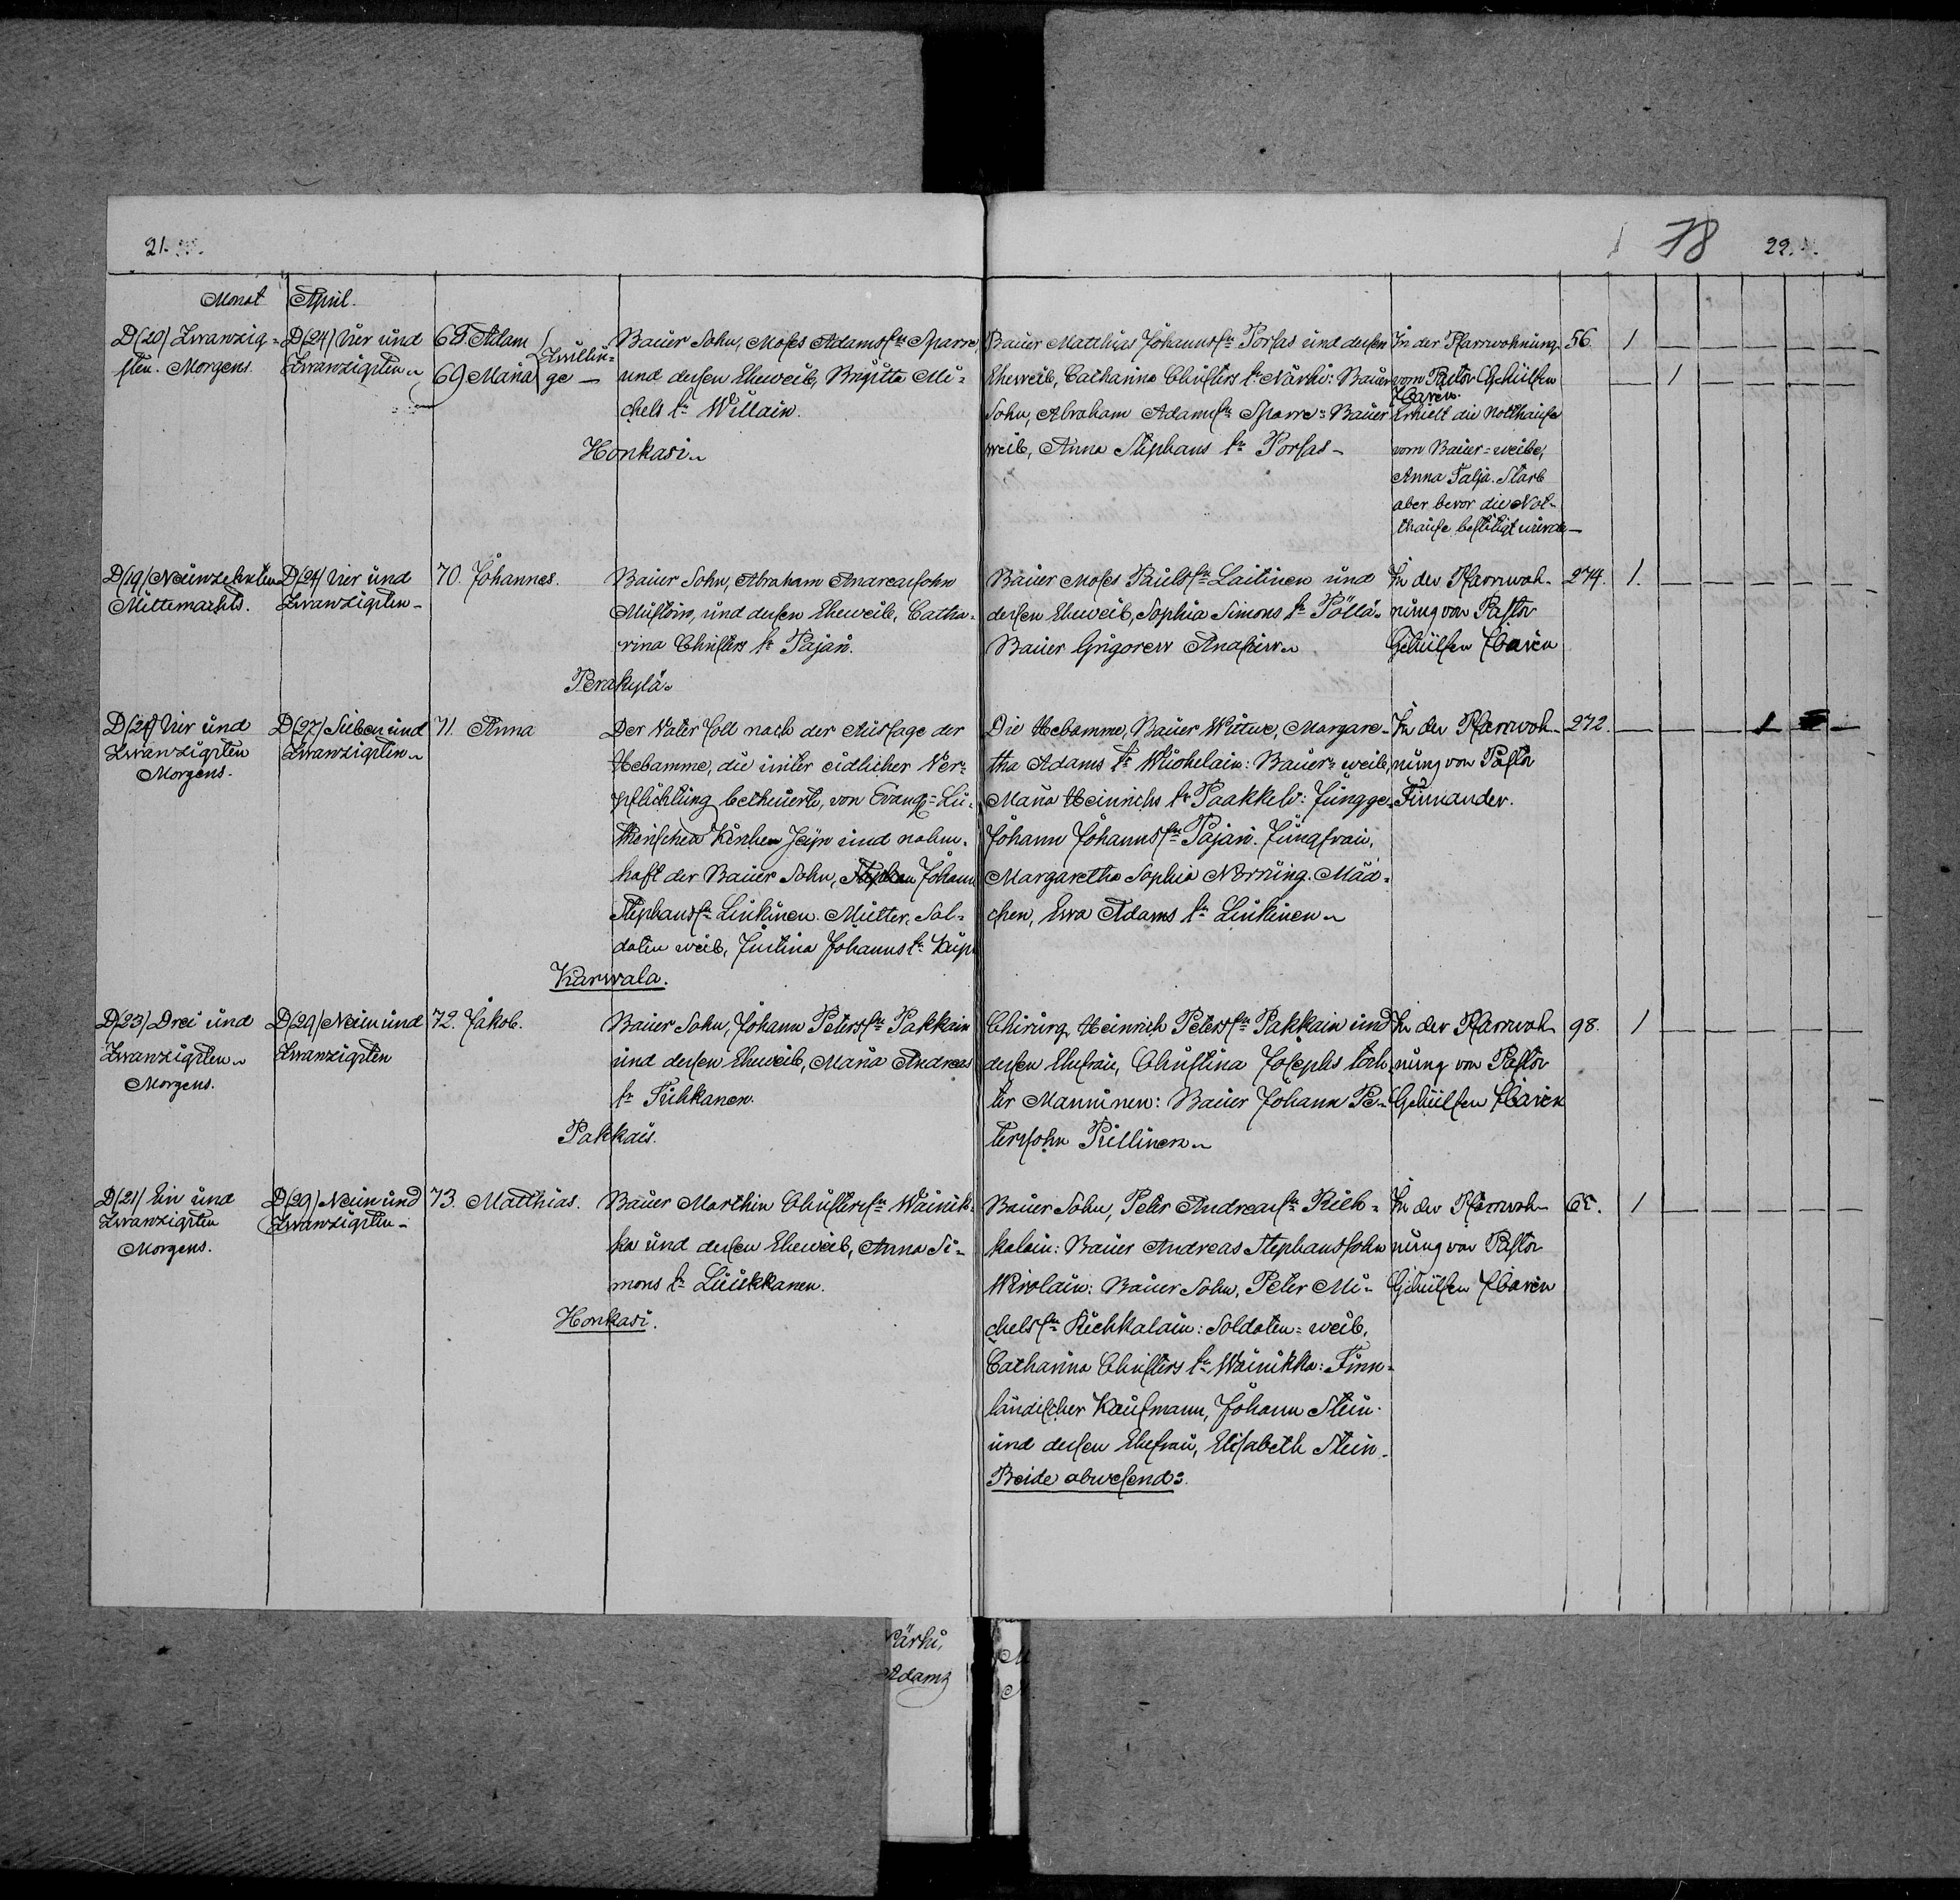 21.
78
22.
Monat April.
D (20) Zwanzig=
sten. Morgens.
D (24) Vier und
Zwanzigsten
68. Adam
69 Maria
Zwillin=
ge
Bauer Sohn, Moses Adamssn Sparre,
und dessen Eheweib, Brigitta Mi=
chels tr Willain.
Honkasi
Bauer Matthias Johannssn Porsas und dessen
Eheweib, Catharina Christers tr Närhi: Bauer
Sohn, Abraham Adamssn Sparre= Bauer
weib, Anna Stephans tr Porsas
In der Pfarrwohnung
vom Pastor Gehülfen
Erhielt die Nothtaufe
vom Bauer=weibe,
Anna Talja. Starb
aber bevor die Not=
thaufe bestätigt wurde
56.
1
1
D (19) Neunzehnten
Mitternachts.
D (24) Vier und
Zwanzigsten
70. Johannes.
Bauer Sohn, Abraham Andreassohn
und dessen Eheweib, Catha=
rina Christers tr Pajari.
Perakylä
Bauer Moses Paulssn Laitinen und
dessen Eheweib, Sophia Simons tr Pöllä
Bauer Grigorew
In der Pfarrwoh=
nung von Pastor
Gehülfen
274.
1.
D (24) Vier und
Zwanzigsten
Morgens.
D (27) Sieben und
Zwanzigsten
71. Anna
Der Vater soll nach der Aussage der
Hebamme, die unter eidlicher Ver=
pflichtung betheuerte, von Evang=Lu=
therischen Kirchen seyn und nahm=
haft der Bauer Sohn, Johann
Stephanssn Liukinen. Mutter, Sol=
daten weib, Justina Johanns tr
Karwala.
Die Hebamme, Bauer Wittwe, Margare=
tha Adams tr Bauer=weib,
Maria Heinrichs tr Paakkeli: Jungge.
Johann Johannssn Pajari. Jungfrau,
Margaretha Sophia Norring. Mäd=
chen, Ewa Adams tr Liukinen
In der Pfarrwoh=
nung von Pastor
Finnander.
272.
1
D (23) Drei und
Zwanzigsten
Morgens.
D (29) Neun und
Zwanzigsten
72. Jakob.
Bauer Sohn, Johann Peterssn Pakkain
und dessen Eheweib, Maria Andreas
tr Tiihkanen.
Pakkais.
Chirurg Heinrich Peterssn Pakkain und
dessen Ehefrau, Christina Josephs toch=
ter Manninen: Bauer Johann Pe=
terssohn Pillinen
In der Pfarrwoh=
nung von Pastor
Gehülfen
98.
1
D (21) Ein und
Zwanzigsten
Morgens.
D (29) Neun und
Zwanzigsten
73. Matthias.
Bauer Marthin Christerssn Wainik=
ka und dessen Eheweib, Anna Si=
mons tr Liiukkanen.
Honkasi.
Bauer Sohn, Peter Andreassn Rieh=
kalain: Bauer Andreas Stephanssohn
Wirolain: Bauer Sohn, Peter Mi=
chelssn Riehkalain: Soldaten=weib,
Catharina Christers tr Wainikka: Finn=
ländischer Kaufmann, Johann Stein
und dessen Ehefrau, Elisabeth Stein
Beide abwesend:
In der Pfarrwoh=
nung von Pastor
Gehülfen
65.
1
ärhi,
Adams